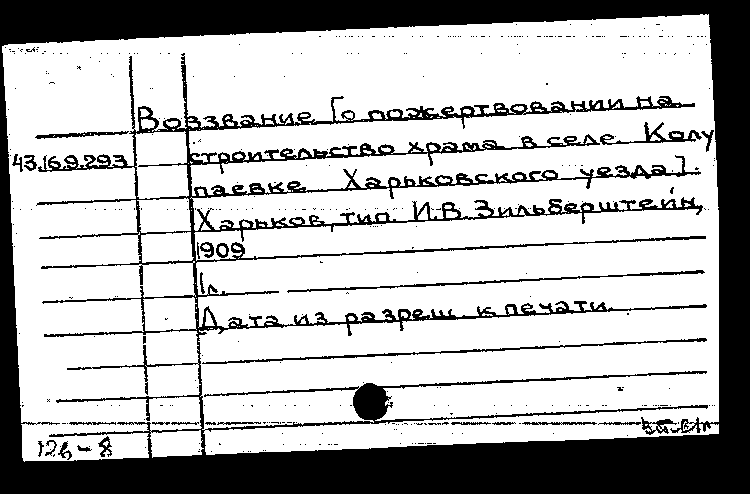 Воззвание [о пожертвовании на
43.16.9.293 строительство храма в селе Колу
паевке Харьковского уезда].
Харьков, тип. И.В. Зильберштейн,
1909
1л.
Дата из разреш. к печати.
12б-8